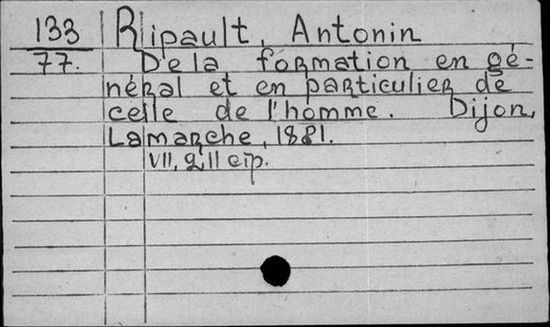 133 Ripault, Antonin
77. De la formation en gé-
néral et en particulier de
celle de l'homme. Dijon,
Lamarche, 1881.
VII,